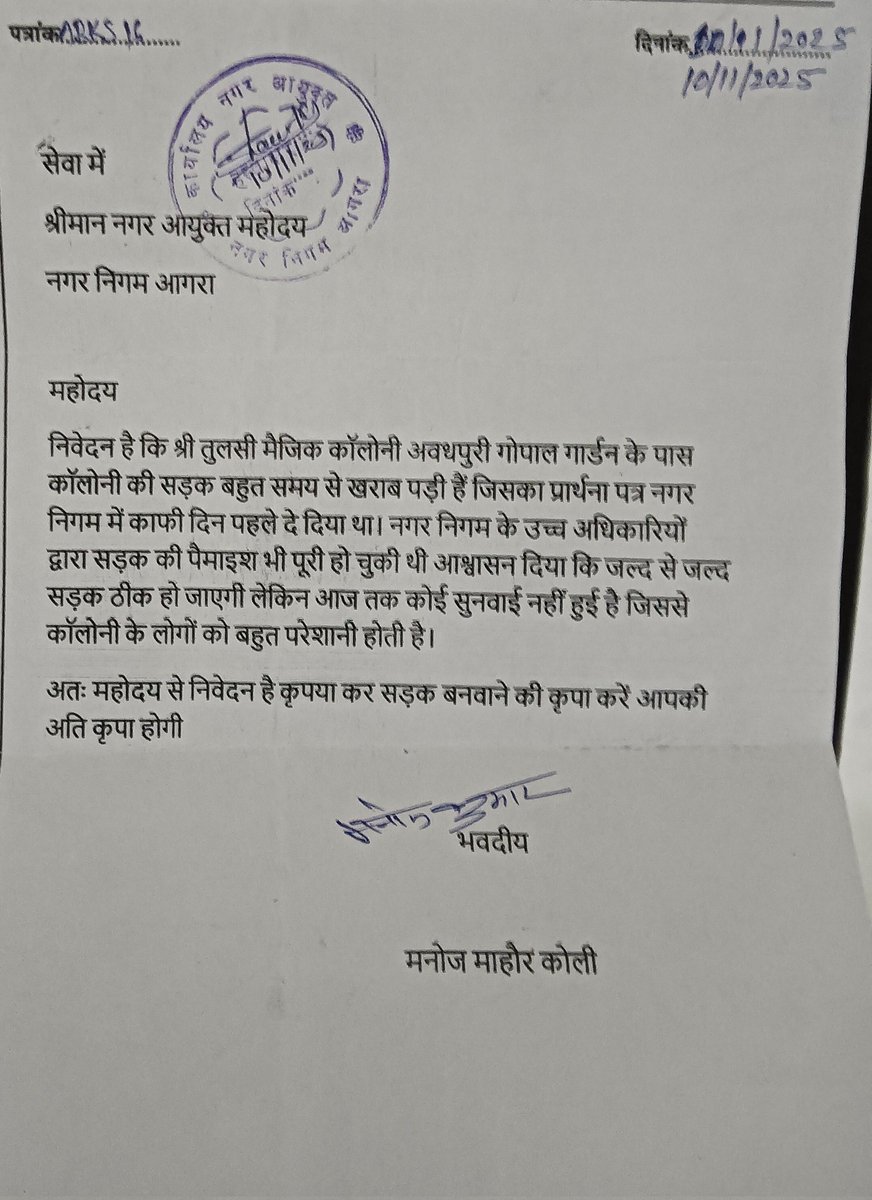 पत्रांक ABKS 16
दिनांक 10/11/2025
10/11/2025
कार्यालय नगर आयुक्त
10/11/25
दिनांक
नगर निगम आगरा
सेवा में
श्रीमान नगर आयुक्त महोदय
नगर निगम आगरा
महोदय
निवेदन है कि श्री तुलसी मैजिक कॉलोनी अवधपुरी गोपाल गार्डन के पास
कॉलोनी की सड़क बहुत समय से खराब पड़ी हैं जिसका प्रार्थना पत्र नगर
निगम में काफी दिन पहले दे दिया था। नगर निगम के उच्च अधिकारियों
द्वारा सड़क की पैमाइश भी पूरी हो चुकी थी आश्वासन दिया कि जल्द से जल्द
सड़क ठीक हो जाएगी लेकिन आज तक कोई सुनवाई नहीं हुई है जिससे
कॉलोनी के लोगों को बहुत परेशानी होती है।
अतः महोदय से निवेदन है कृपया कर सड़क बनवाने की कृपा करें आपकी
अति कृपा होगी
मनोज कुमार
भवदीय
मनोज माहौर कोली